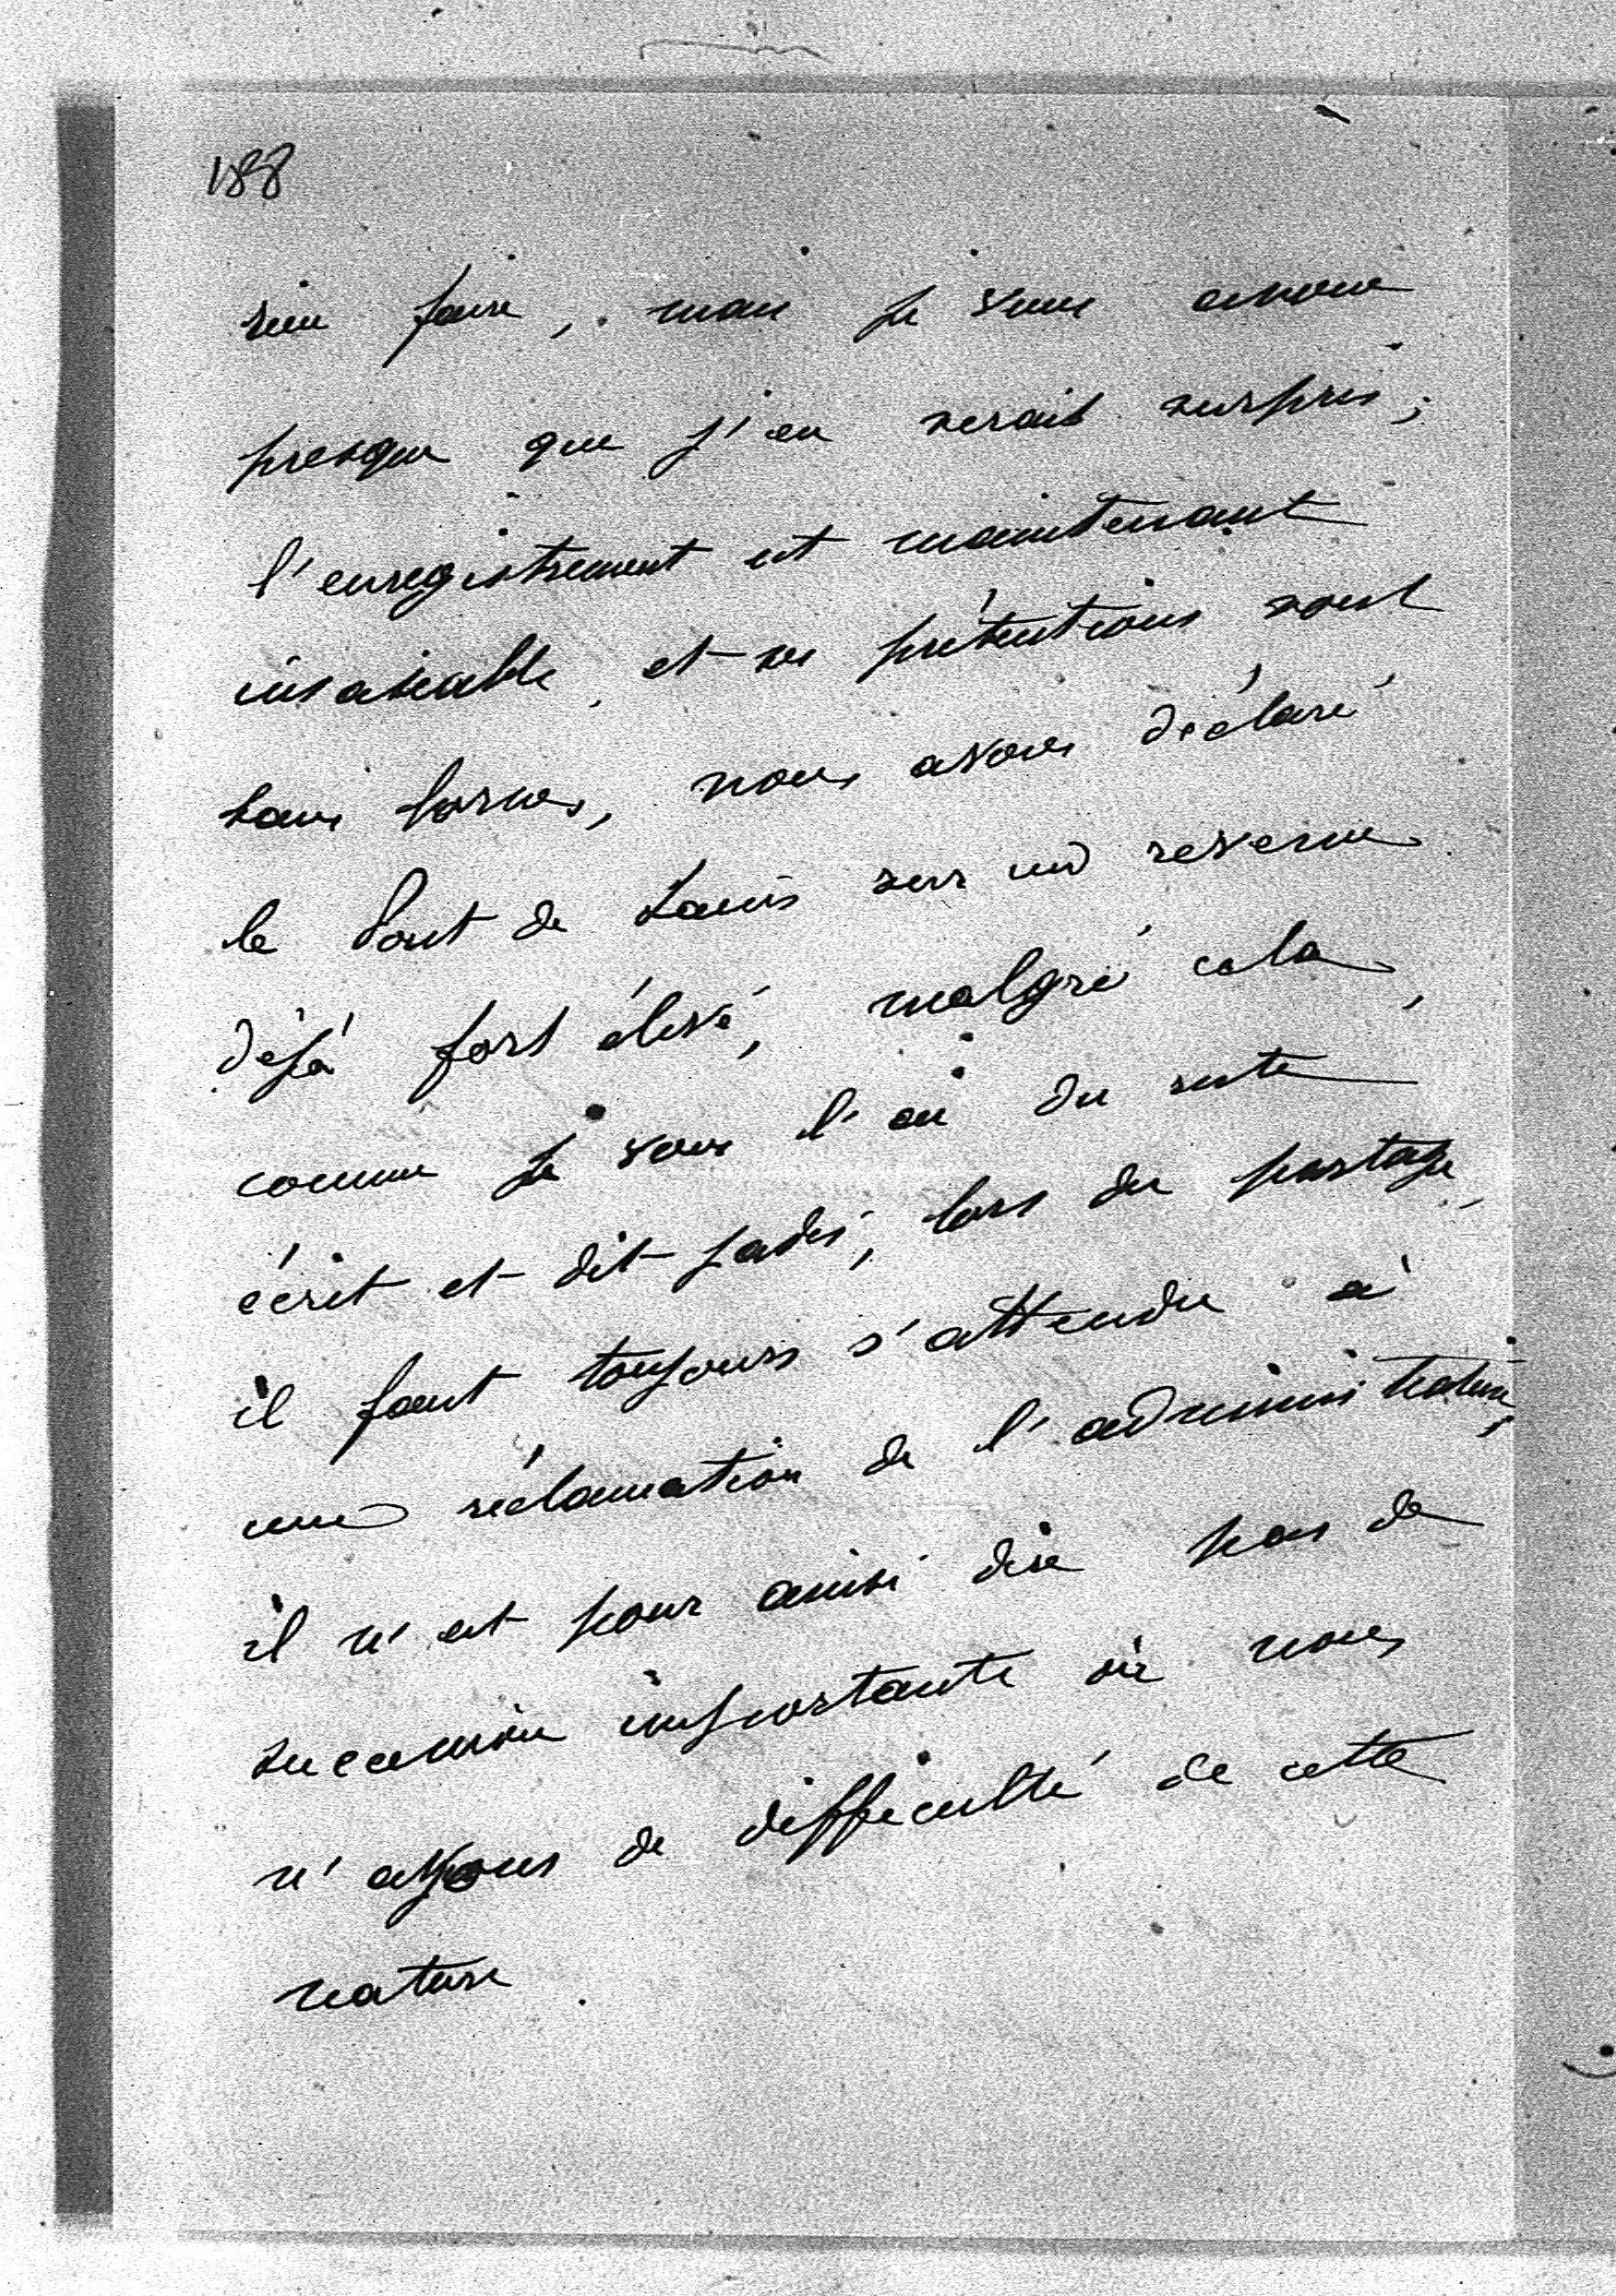 188
rien faire, mais je vous avoue
presque que j'en serais surpris;
l'enregistrement est maintenant
insatiable, et ses prétentions sont
sans bornes, nous avons déclaré
le Pont de sur un revenu
déjà fort élevé, malgré cela,
comme je vous l'ai du reste
écrit et dit jadis, lors du partage,
il faut toujours s'attendre à
une réclamation de l'administration,
il n'est pour ainsi dire pas de
succession importante où nous
n'ayons de difficulté de cette
nature.